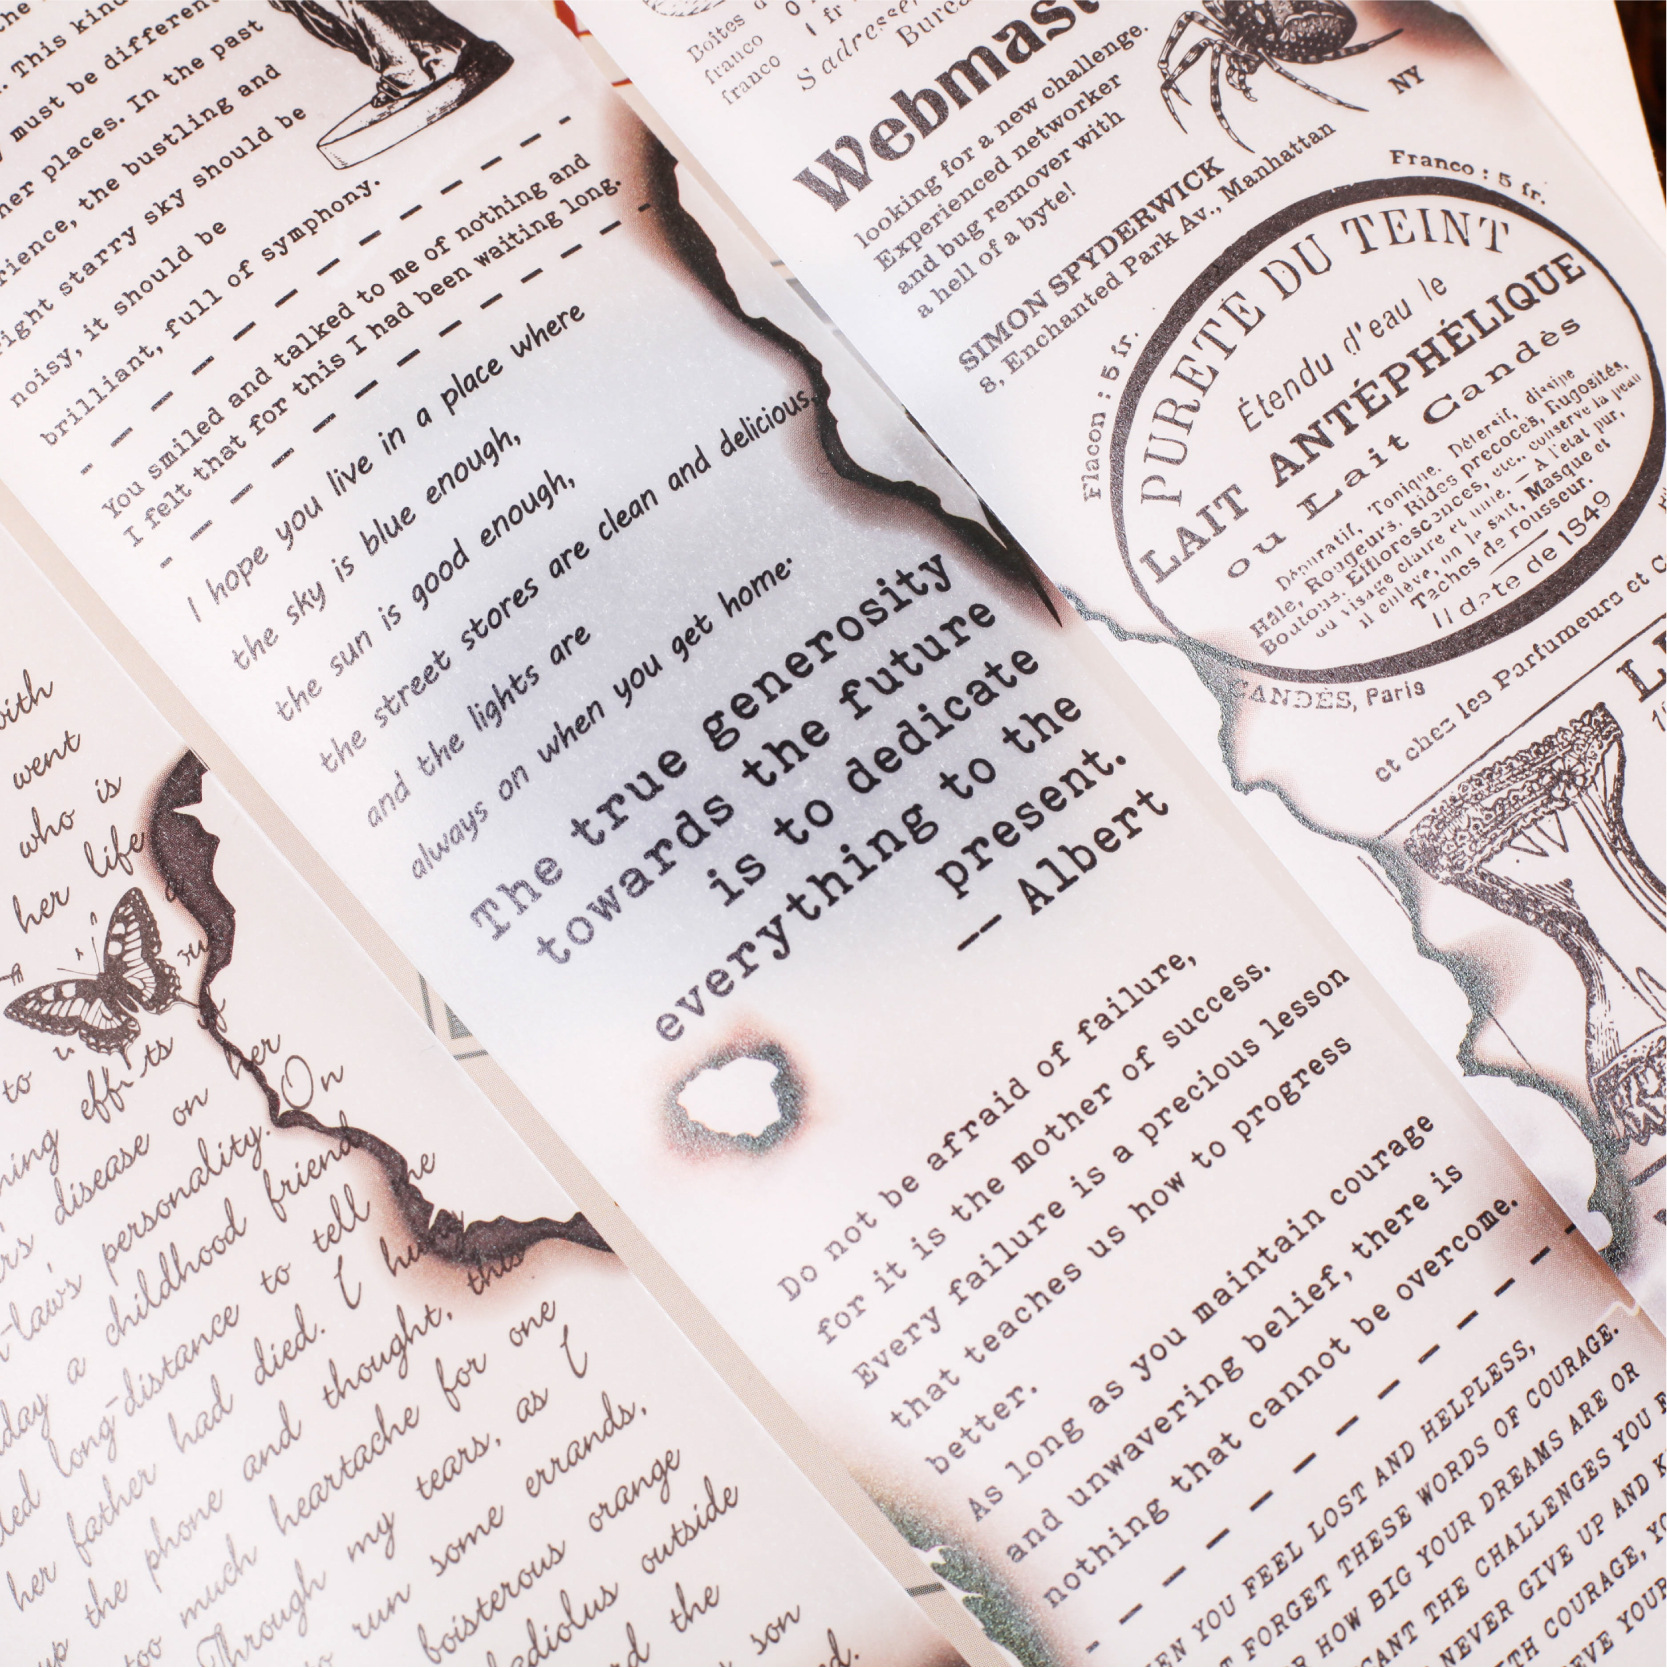 This kind
must be different
her places. In the past
rience, the bustling and
right starry sky should be
noisy, it should be
brilliant, full of symphony.
You smiled and talked to me of nothing and
I felt that for this I had been waiting long.
I hope you live in a place where
the sky is blue enough,
the sun is good enough,
the street stores are clean and delicious,
and the lights are
always on when you get home.
The true generosity
towards the future
is to dedicate
everything to the
present.
-- Albert
Do not be afraid of failure,
for it is the mother of success.
Every failure is a precious lesson
that teaches us how to progress
better.
As long as you maintain courage
and unwavering belief, there is
nothing that cannot be overcome.
EN YOU FEEL LOST AND HELPLESS,
T FORGET THESE WORDS OF COURAGE.
R HOW BIG YOUR DREAMS ARE OR
CANT THE CHALLENGES YOU F
NEVER GIVE UP AND K
TH COURAGE, YO
EVE YOUR
with
went
who is
her life
to
effi ts
ning
her
ers' disease on
On
-law's personality.
day a childhood friend
led long-distance to tell me
her father had died. I hung
up the phone and thought, this
too much heartache for one
Through my tears, as I
to run some errands,
boisterous orange
ladiolus outside
d the
son
d.
Boîtes
franco
franco
1 fr
S'adresser
Bureau
Webmast
looking for a new challenge.
Experienced networker
and bug remover with
a hell of a byte!
SIMON SPYDERWICK
8, Enchanted Park Av., Manhattan
NY
Franco : 5 fr.
Flacon : 5 fr.
PURETÉ DU TEINT
Étendu d'eau le
LAIT ANTÉPHÉLIQUE
ou Lait Candès
Dépuratif, Tonique, Détersif, dissipe
Hâle, Rougeurs, Rides précoces, Rugosités,
Boutons, Efflorescences, etc., conserve la peau
du visage claire et unie. — A l'état pur,
il enlève, on le sait, Masque et
Taches de rousseur.
Il date de 1849
CANDÈS, Paris
et chez les Parfumeurs et C
L